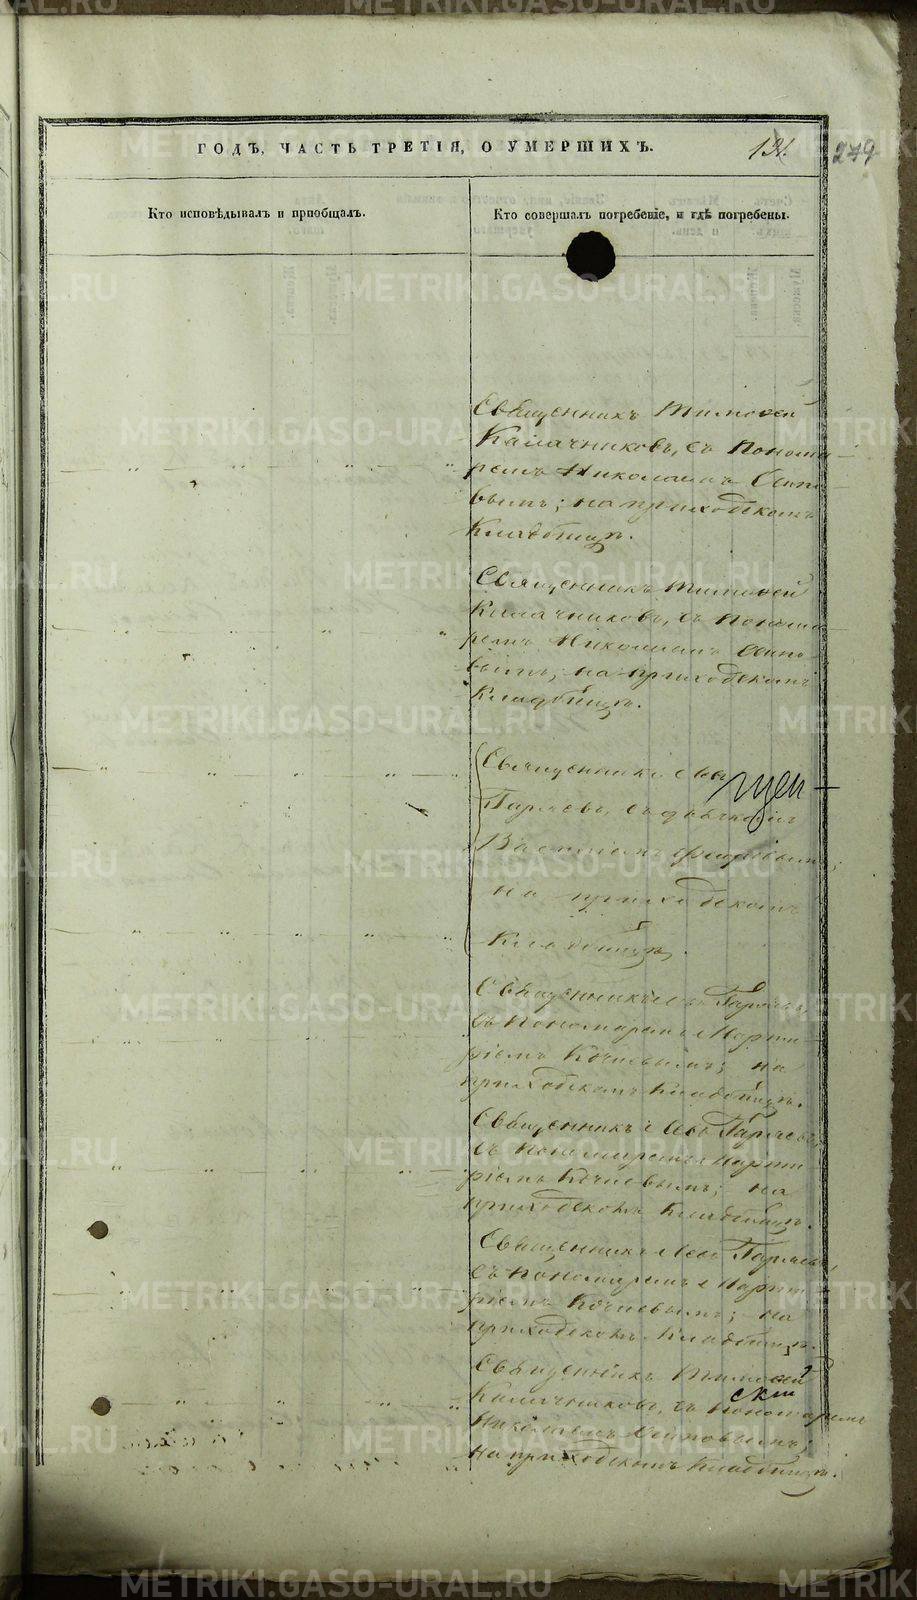 METRIKI.GASO-URAL.RU
ГОДЪ, ЧАСТЬ ТРЕТІЯ, О УМЕРШИХЪ.
131.
279
Кто исповѣдывалъ и пріобщалъ.
Кто совершалъ погребеніе, и гдѣ погребены.
Священникъ Тимоѳей
Калачниковъ, съ Понома-
ремъ Николаемъ
вымъ; на приходскомъ
Кладбищѣ.
Священникъ Тимоѳей
Калачниковъ, съ Понома
ремъ Николаемъ
вымъ; на приходскомъ
Кладбищѣ.
Священникъ Левъ
Гаряевъ, съ дьячкомъ
на приходскомъ
Кладбищѣ.
Священникъ Левъ Гаряевъ,
съ Пономаремъ Марти
ріемъ Кочневымъ; на
приходскомъ Кладбищѣ.
Священникъ Левъ Гаряевъ,
съ Пономаремъ Марти
ріемъ Кочневымъ; на
приходскомъ Кладбищѣ.
Священникъ Левъ Гаряевъ,
съ Пономаремъ Марти
ріемъ Кочневымъ; на
приходскомъ Кладбищѣ.
Священникъ Тимоѳей
Калачниковъ, съ Пономаремъ
Николаемъ
на приходскомъ Кладбищѣ.